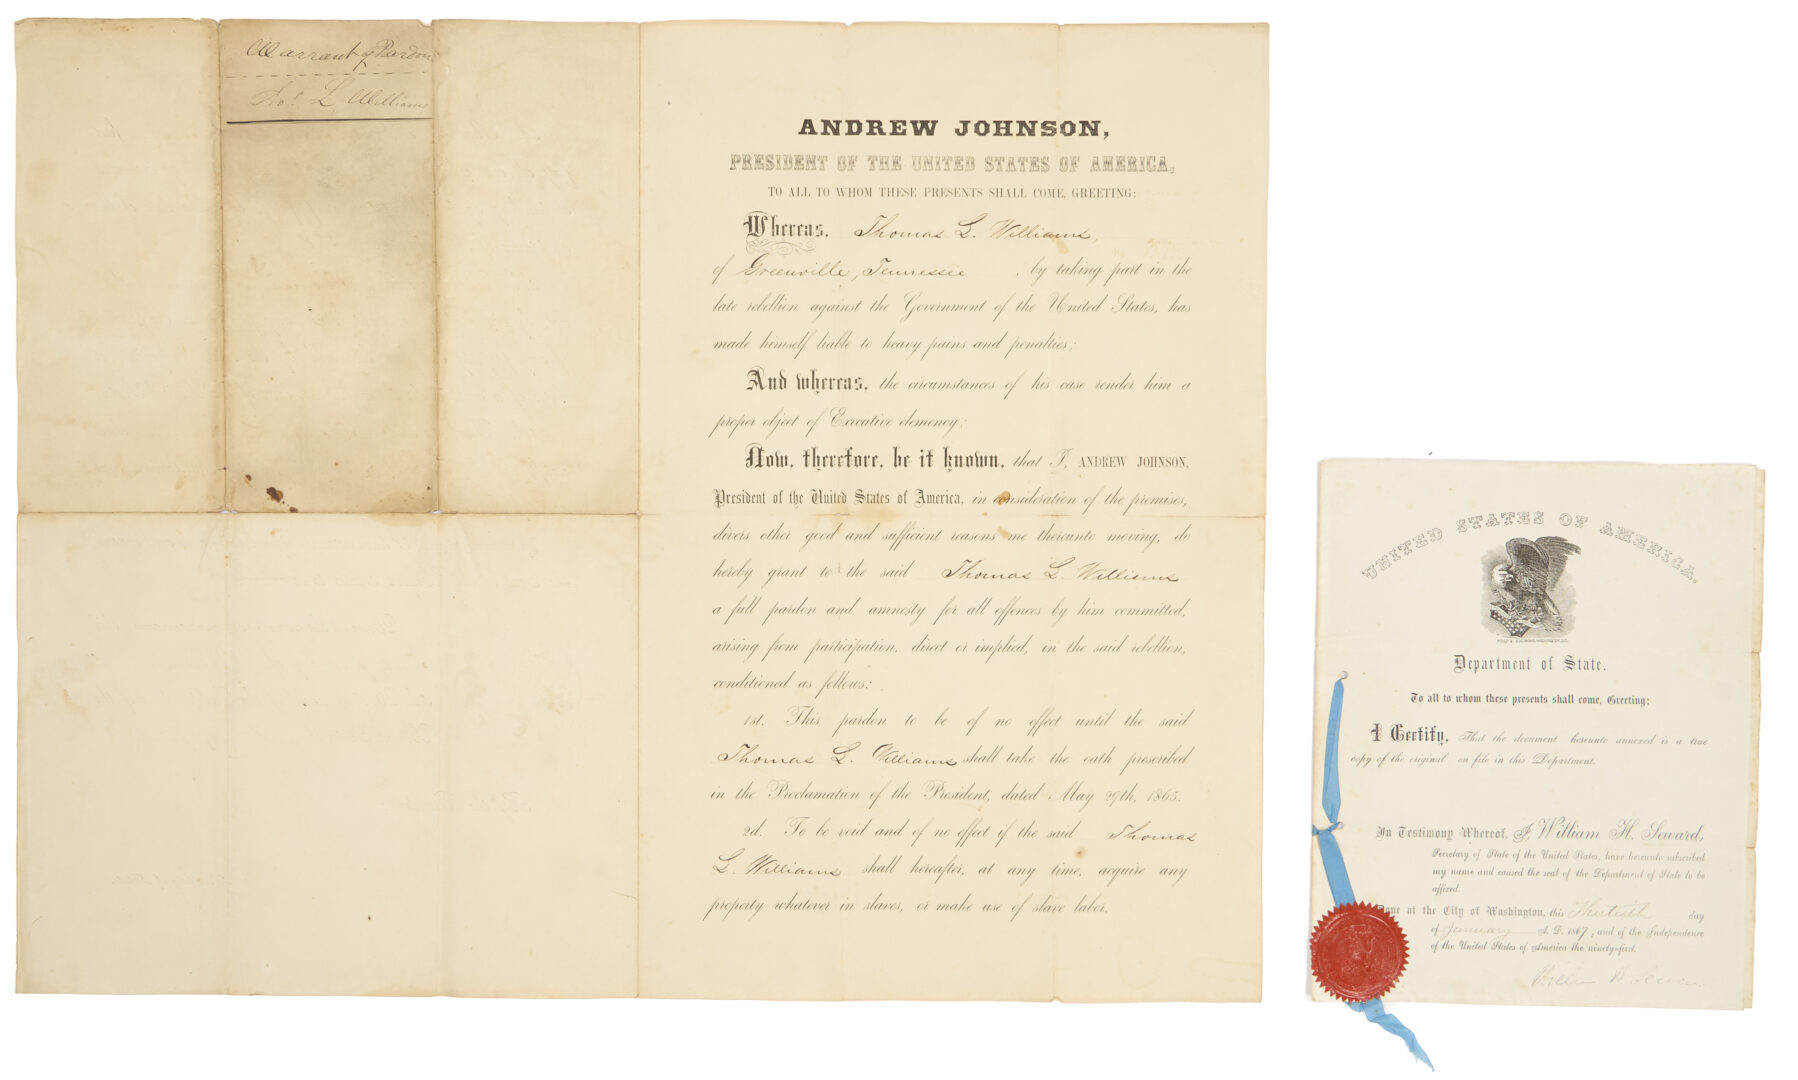 Warrant of Pardon
Thos. L. Williams
ANDREW JOHNSON,
PRESIDENT OF THE UNITED STATES OF AMERICA,
TO ALL TO WHOM THESE PRESENTS SHALL COME, GREETING:
Whereas, Thomas L. Williams,
of Greenville, Tennessee , by taking part in the
late rebellion against the Government of the United States, has
made himself liable to heavy pains and penalties;
And whereas, the circumstances of his case render him a
proper object of Executive clemency;
Now, therefore, be it known, that I, ANDREW JOHNSON,
President of the United States of America, in consideration of the premises,
divers other good and sufficient reasons me thereunto moving, do
hereby grant to the said Thomas L. Williams
a full pardon and amnesty for all offences by him committed,
arising from participation, direct or implied, in the said rebellion,
conditioned as follows:
1st. This pardon to be of no effect until the said
Thomas L. Williams shall take the oath prescribed
in the Proclamation of the President, dated May 29th, 1865.
2d. To be void and of no effect if the said Thomas
L. Williams shall hereafter, at any time, acquire any
property whatever in slaves, or make use of slave labor.
UNITED STATES OF AMERICA.
Department of State.
To all to whom these presents shall come, Greeting:
I Certify, That the document hereunto annexed is a true
copy of the original on file in this Department.
In Testimony Whereof, I, William H. Seward,
Secretary of State of the United States, have hereunto subscribed
my name and caused the seal of the Department of State to be
affixed.
Done at the City of Washington, this Thirtieth day
of January A. D. 1867, and of the Independence
of the United States of America the ninety-first.
William H. Seward